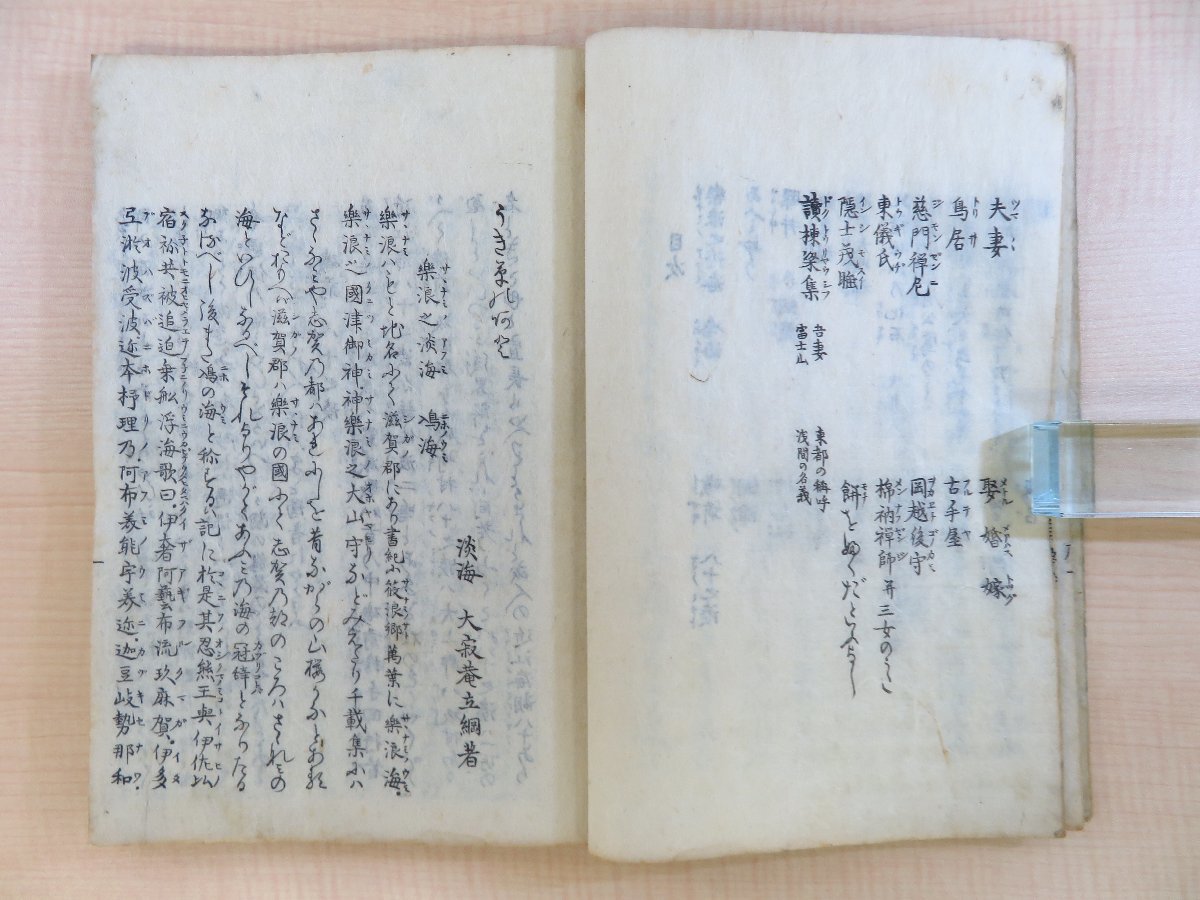 夫妻
鳥居
慈門禅尼
東儀氏
隠士茂睡
讀棟梁集 吾妻 富士山
娶 婚 嫁
古手屋
岡越後守
棉衲禅師并三女のうた
餅を
東都の稱呼
浅間の名義
うき草の
樂浪之淡海 鳰海
淡海 大寂菴立綱著
樂浪ハもと地名にて滋賀郡にあり書紀小筱浪郷萬葉に樂浪海
樂浪之國津御神神樂浪之大山守などみえたり千載集にハ
さゝ浪や志賀の都ハあれにしを昔ながらの山櫻かなとあり
などあれハ滋賀郡ハ樂浪の國にて志賀の都のころハされどの
海といひしなるべしそれよりやがてあふミの海の冠辞となりたる
なるべし後また鳰の海と称するハ記に於是其忍熊王與伊佐比
宿祢共被追迫乗舩浮海歌曰伊奢阿藝布流玖麻賀伊多
弖淤波受波迩本杼理乃阿布美能宇美迩迦豆岐勢那和